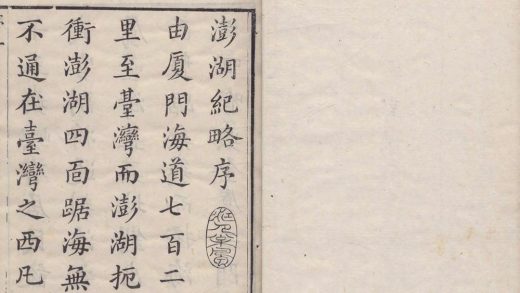 澎湖紀略序
由厦門海道七百二
里至臺灣而澎湖扼
衝澎湖四面踞海無
不通在臺灣之西凡